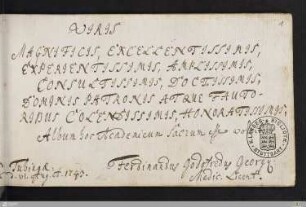 VIRIS
MAGNIFICIS, EXCELLENTISSIMIS,
EXPERIENTISSIMIS, AMPLISSIMIS,
CONSULTISSIMIS, DOCTISSIMIS,
DOMINIS PATRONIS ATQUE FAUTO-
RIBUS COLENDISSIMIS, HONORATISSIMIS,
Album hoc Academicum Sacrum esse
Tubingæ
Ferdinandus Godofredus Georgi
Medic. Licent.